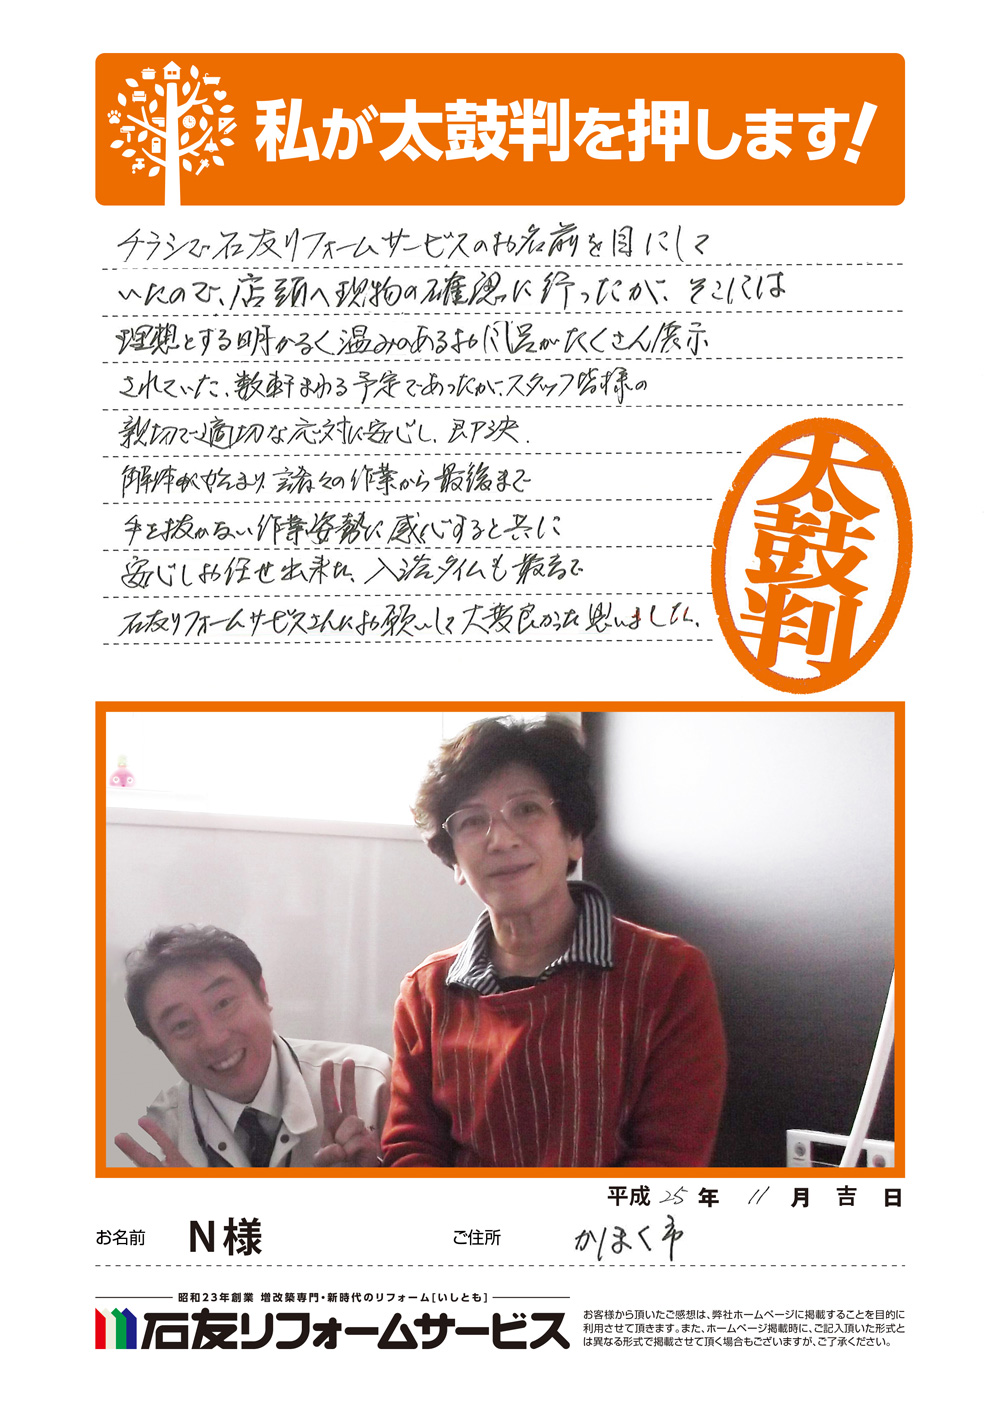 私が太鼓判を押します!
チラシで石友リフォームサービスのお名前を目にして
いたので、店頭へ現物の確認に行ったが、そこには
理想とする明かるく温みのあるお風呂がたくさん展示
されていた、数軒まわる予定であったが、スタッフ皆様の
親切で適切な応対に安心し、即決、
解体が始まり諸々の作業から最後まで
手を抜かない作業姿勢に感心すると共に
安心しお任せ出来た、入浴タイムも最高で
石友リフォームサービスさんにお願いして大変良かった思いました、
太鼓判
平成25年 11月 吉 日
お名前 N様 ご住所 かほく市
昭和23年創業 増改築専門・新時代のリフォーム[いしとも]
石友リフォームサービス
お客様から頂いたご感想は、弊社ホームページに掲載することを目的に
利用させて頂きます。また、ホームページ掲載時に、ご記入頂いた形式と
は異なる形式で掲載させて頂く場合もございますが、ご了承ください。